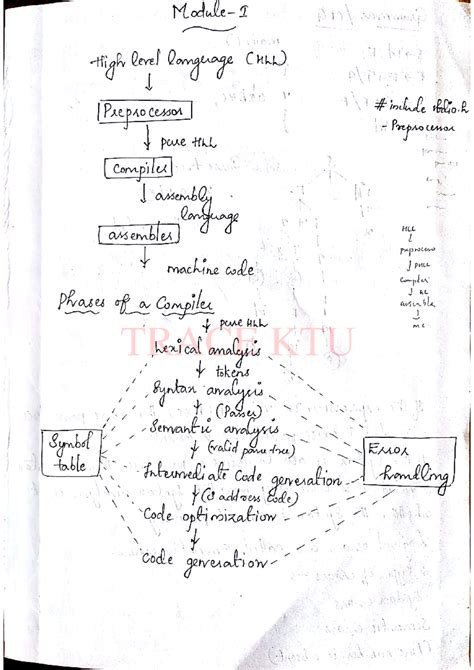 Module-I
High level language (HLL)
Preprocessor
# include stdio.h
- Preprocessor
pure HLL
Compiler
assembly
language
assembler
machine code
HLL
preprocessor
↓ pHLL
compiler
↓ AL
assemble
MC
Phrases of a Compiler
pure HLL
TRACE KTU
Lexical analysis
tokens
Syntax analysis
(Parser)
Semantic analysis
(valid parse tree)
Symbol
table
Error
handling
Intermediate Code generation
address code)
Code optimization
Code generation